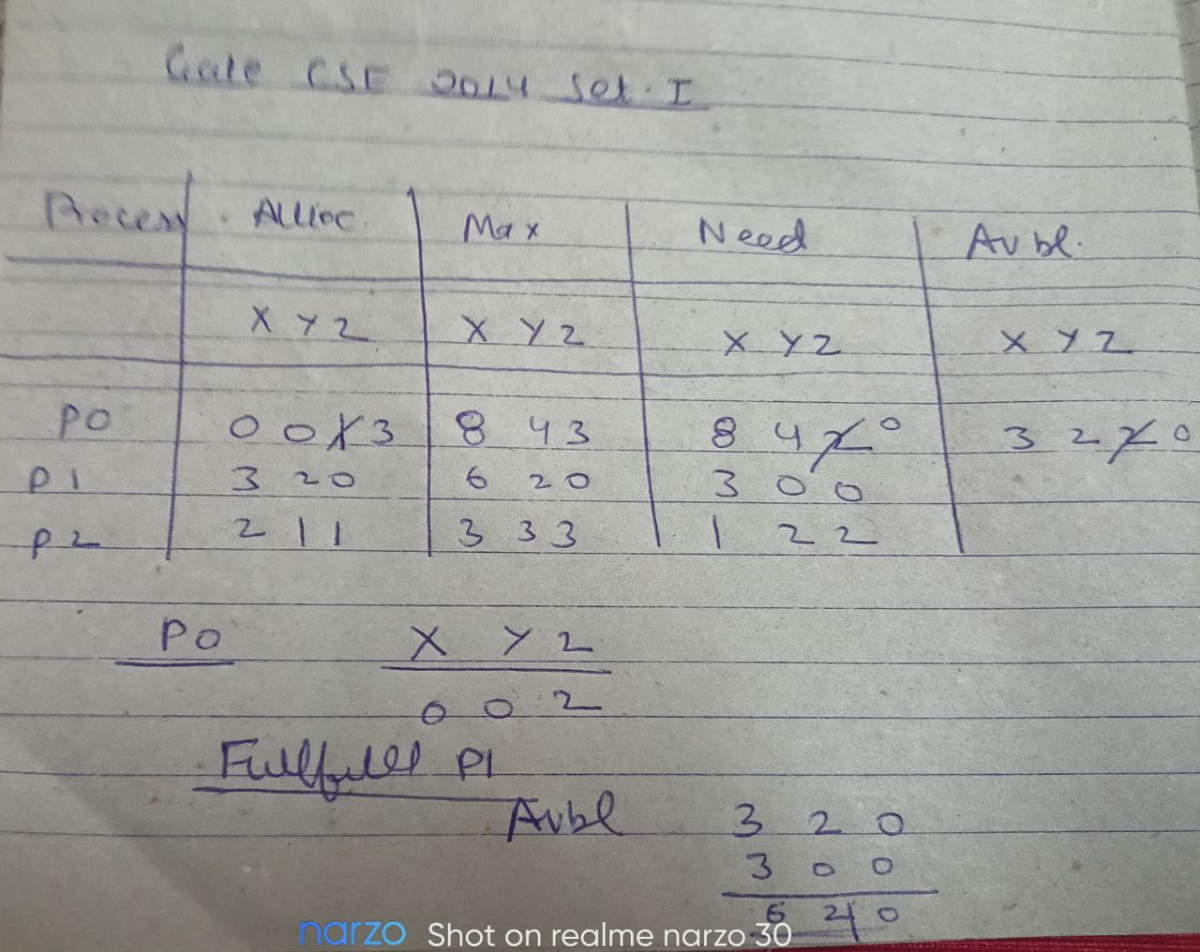 Gate CSE 2014 Set. I
Process Alloc Max Need Avbl.
X Y Z X Y Z X Y Z X Y Z
P0 0 0 1 3 8 4 3 8 4 2 0 3 2 2 0
P1 3 2 0 6 2 0 3 0 0
P2 2 1 1 3 3 3 1 2 2
P0 X Y Z
0 0 2
Fullfull P1
Avbl 3 2 0
3 0 0
6 4 0
narzo Shot on realme narzo 30